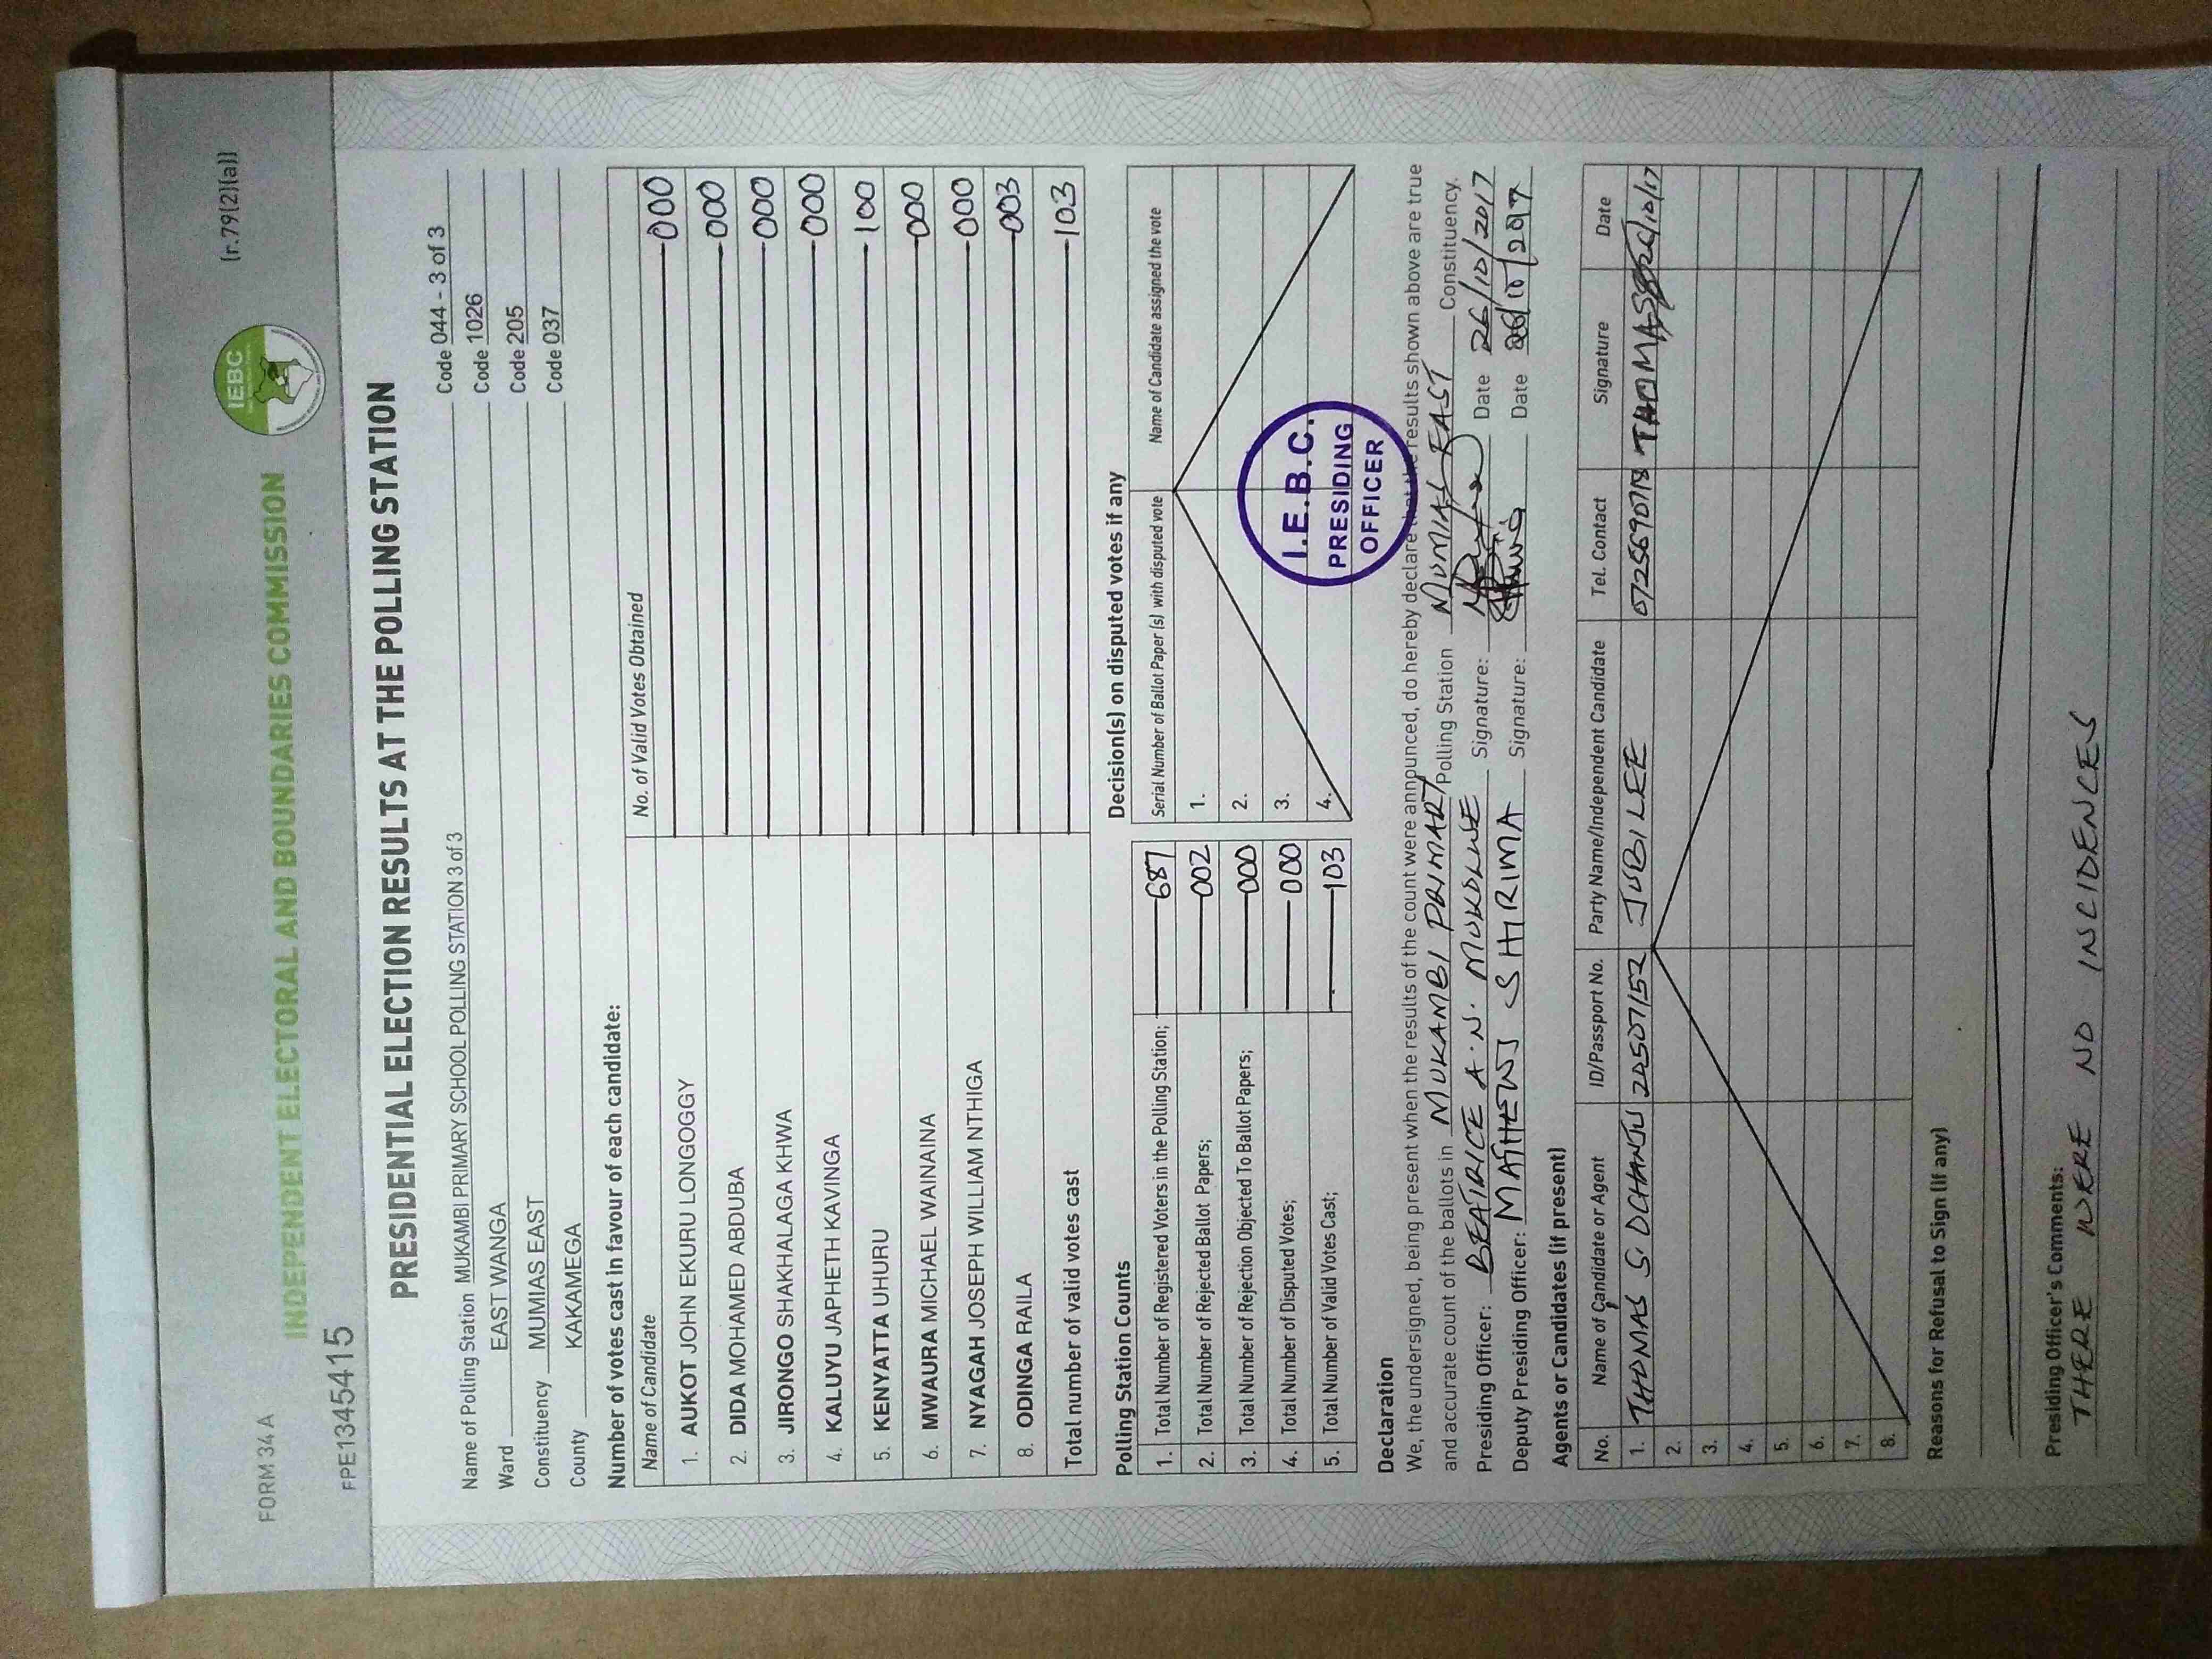 FORM 34 A
(r.79(2)(a))
IEBC
INDEPENDENT ELECTORAL AND BOUNDARIES COMMISSION
FPE1345415
PRESIDENTIAL ELECTION RESULTS AT THE POLLING STATION
Name of Polling Station MUKAMBI PRIMARY SCHOOL POLLING STATION 3 of 3 Code 044 - 3 of 3
Ward EAST WANGA Code 1026
Constituency MUMIAS EAST Code 205
County KAKAMEGA Code 037
Number of votes cast in favour of each candidate:
Name of Candidate No. of Valid Votes Obtained
1. AUKOT JOHN EKURU LONGOGGY 000
2. DIDA MOHAMED ABDUBA 000
3. JIRONGO SHAKHALAGA KHWA 000
4. KALUYU JAPHETH KAVINGA 000
5. KENYATTA UHURU 100
6. MWAURA MICHAEL WAINAINA 000
7. NYAGAH JOSEPH WILLIAM NTHIGA 000
8. ODINGA RAILA 003
Total number of valid votes cast 103
Polling Station Counts
1. Total Number of Registered Voters in the Polling Station; 687
2. Total Number of Rejected Ballot Papers; 002
3. Total Number of Rejection Objected To Ballot Papers; 000
4. Total Number of Disputed Votes; 000
5. Total Number of Valid Votes Cast; 103
Decision(s) on disputed votes if any
Serial Number of Ballot Paper (s) with disputed vote Name of Candidate assigned the vote
1.
2.
3.
4.
I.E.B.C.
PRESIDING
OFFICER
Declaration
We, the undersigned, being present when the results of the count were announced, do hereby declare that the results shown above are true
and accurate count of the ballots in MUKAMBI PRIMARY Polling Station MUMIAS EAST Constituency.
Presiding Officer: BEATRICE A. N. MUKOLWE Signature: Date 26/10/2017
Deputy Presiding Officer: MATHEWS SHIRIMA Signature: Date 26/10/2017
Agents or Candidates (if present)
No. Name of Candidate or Agent ID/Passport No. Party Name/Independent Candidate Tel. Contact Signature Date
1. THOMAS S. OCHANJU 24507152 JUBILEE 0725690718 THOMAS 26/10/17
2.
3.
4.
5.
6.
7.
8.
Reasons for Refusal to Sign (if any)
Presiding Officer's Comments:
THERE WERE NO INCIDENCES